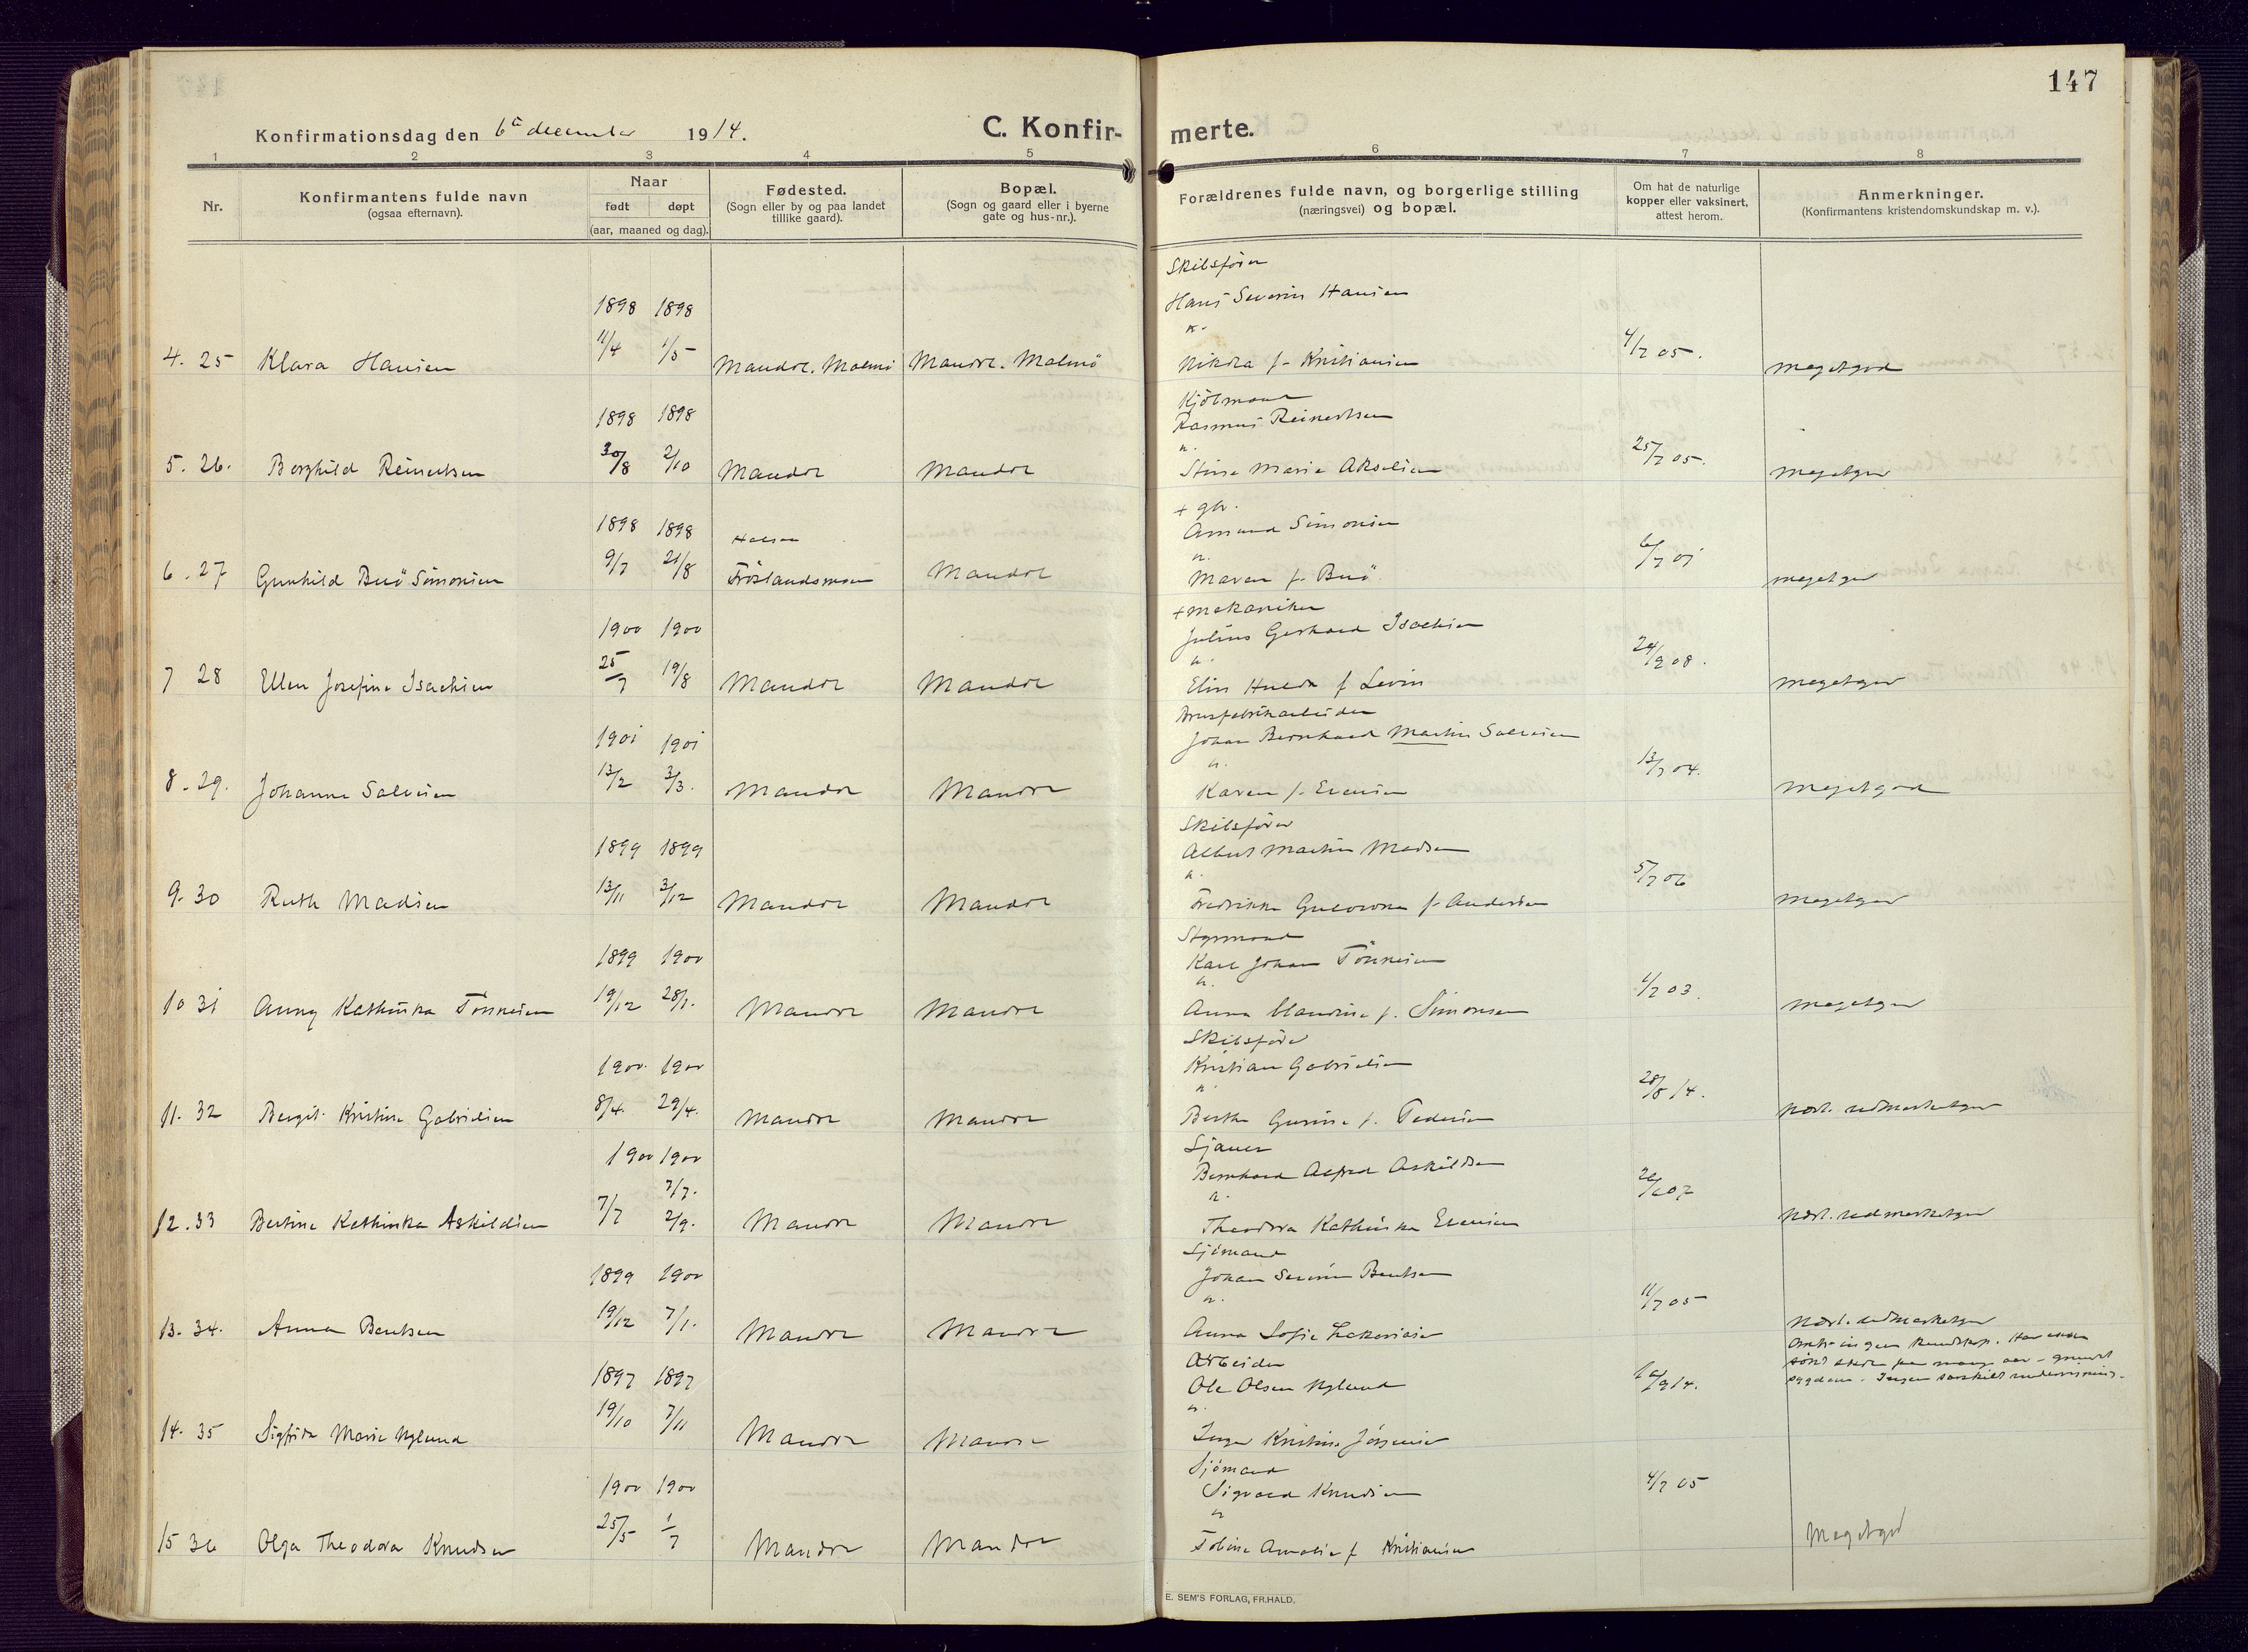 147
Konfirmationsdag den 6te december 1914.
C. Konfirmerte.
1 2 3 4 5 6 7 8
Nr.
Konfirmantens fulde navn
(ogsaa efternavn).
Naar
født døpt
(aar, maaned og dag).
Fødested.
(Sogn eller by og paa landet
tillike gaard).
Bopæl.
(Sogn og gaard eller i byerne
gate og hus-nr.).
Forældrenes fulde navn, og borgerlige stilling
(næringsvei) og bopæl.
Om hat de naturlige
kopper eller vaksinert,
attest herom.
Anmerkninger.
(Konfirmantens kristendomskundskap m. v.).
Skibsfører
Hans Severin Hansen
1898 1898
4. 25 Klara Hansen 11/4 1/5 Mandal. Malmø Mandal. Malmø
f. Kristiansen 4/7 05. megetgod
Kjøbmand
Rasmus Reinertsen
1898 1898
5. 26. Borghild Reinertsen 30/8 2/10 Mandal Mandal
Stine Marie Akselsen 25/7 05. megetgod
+ gbr.
Amund Simonsen
1898 1898
Halsaa
6. 27 Gunhild Buø Simonsen 9/7 21/8 Frøslandsmoen Mandal
Maren f. Buø megetgod
+ mekaniker
Julius Gerhard Isachsen
1900 1900
7 28 Ellen Josefine Isachsen 25/7 19/8 Mandal Mandal
Elin Hulda f Levin 24/9 08. megetgod
Johan Bernhard Martin Salvesen
1901 1901
8. 29. Johanne Salvesen 13/2 3/3. Mandal Mandal
Karen f. Evensen 13/7 04. megetgod
Skibsfører
Albert Martin Madsen
1899 1899
9. 30 Ruth Madsen 13/11 3/12 Mandal Mandal
Fredrikke f. Andersen 5/7 06 megetgod
Styrmand
Karl Johan Tønnesen
1899 1900
10 31 Anny Kathinka Tønnesen 19/12 28/1. Mandal Mandal
Anna Blandine f. Simonsen 1/7 03. megetgod
Skibsfører
Kristian Gabrielsen
1900. 1900
11. 32 Bergit Kristine Gabrielsen 8/4. 29/4. Mandal Mandal
Berthe Gurine f. Pedersen 28/8 14. næst. udmerketgod
Sjauer
Bernhard Alfred Askildsen
1900 1900
7/7.
12. 33 Bertine Kathinka Askildsen 7/7 2/9. Mandal Mandal
Theodora Kathinka Evensen næst. udmerketgod
Sjømand
Johan Severin Bentsen
1899 1900
13. 34. Anna Bentsen 19/12 7/1. Mandal Mandal
Anna Sofie Zakariasen 11/7 05 næst. udmerketgod
Arbeider
Ole Olsen Nylund
1897 1897
14. 35 Sigfrida Marie Nylund 19/10 7/11 Mandal Mandal
Inger Kristine Jørgensen
Sjømand
Sigvard Knudsen
1900 1900
15 36 Olga Theodora Knudsen 25/5 1/7 Mandal Mandal
Tobine Amalie f Kristiansen 4/7 05 Megetgod
E. SEM'S FORLAG, FR.HALD.